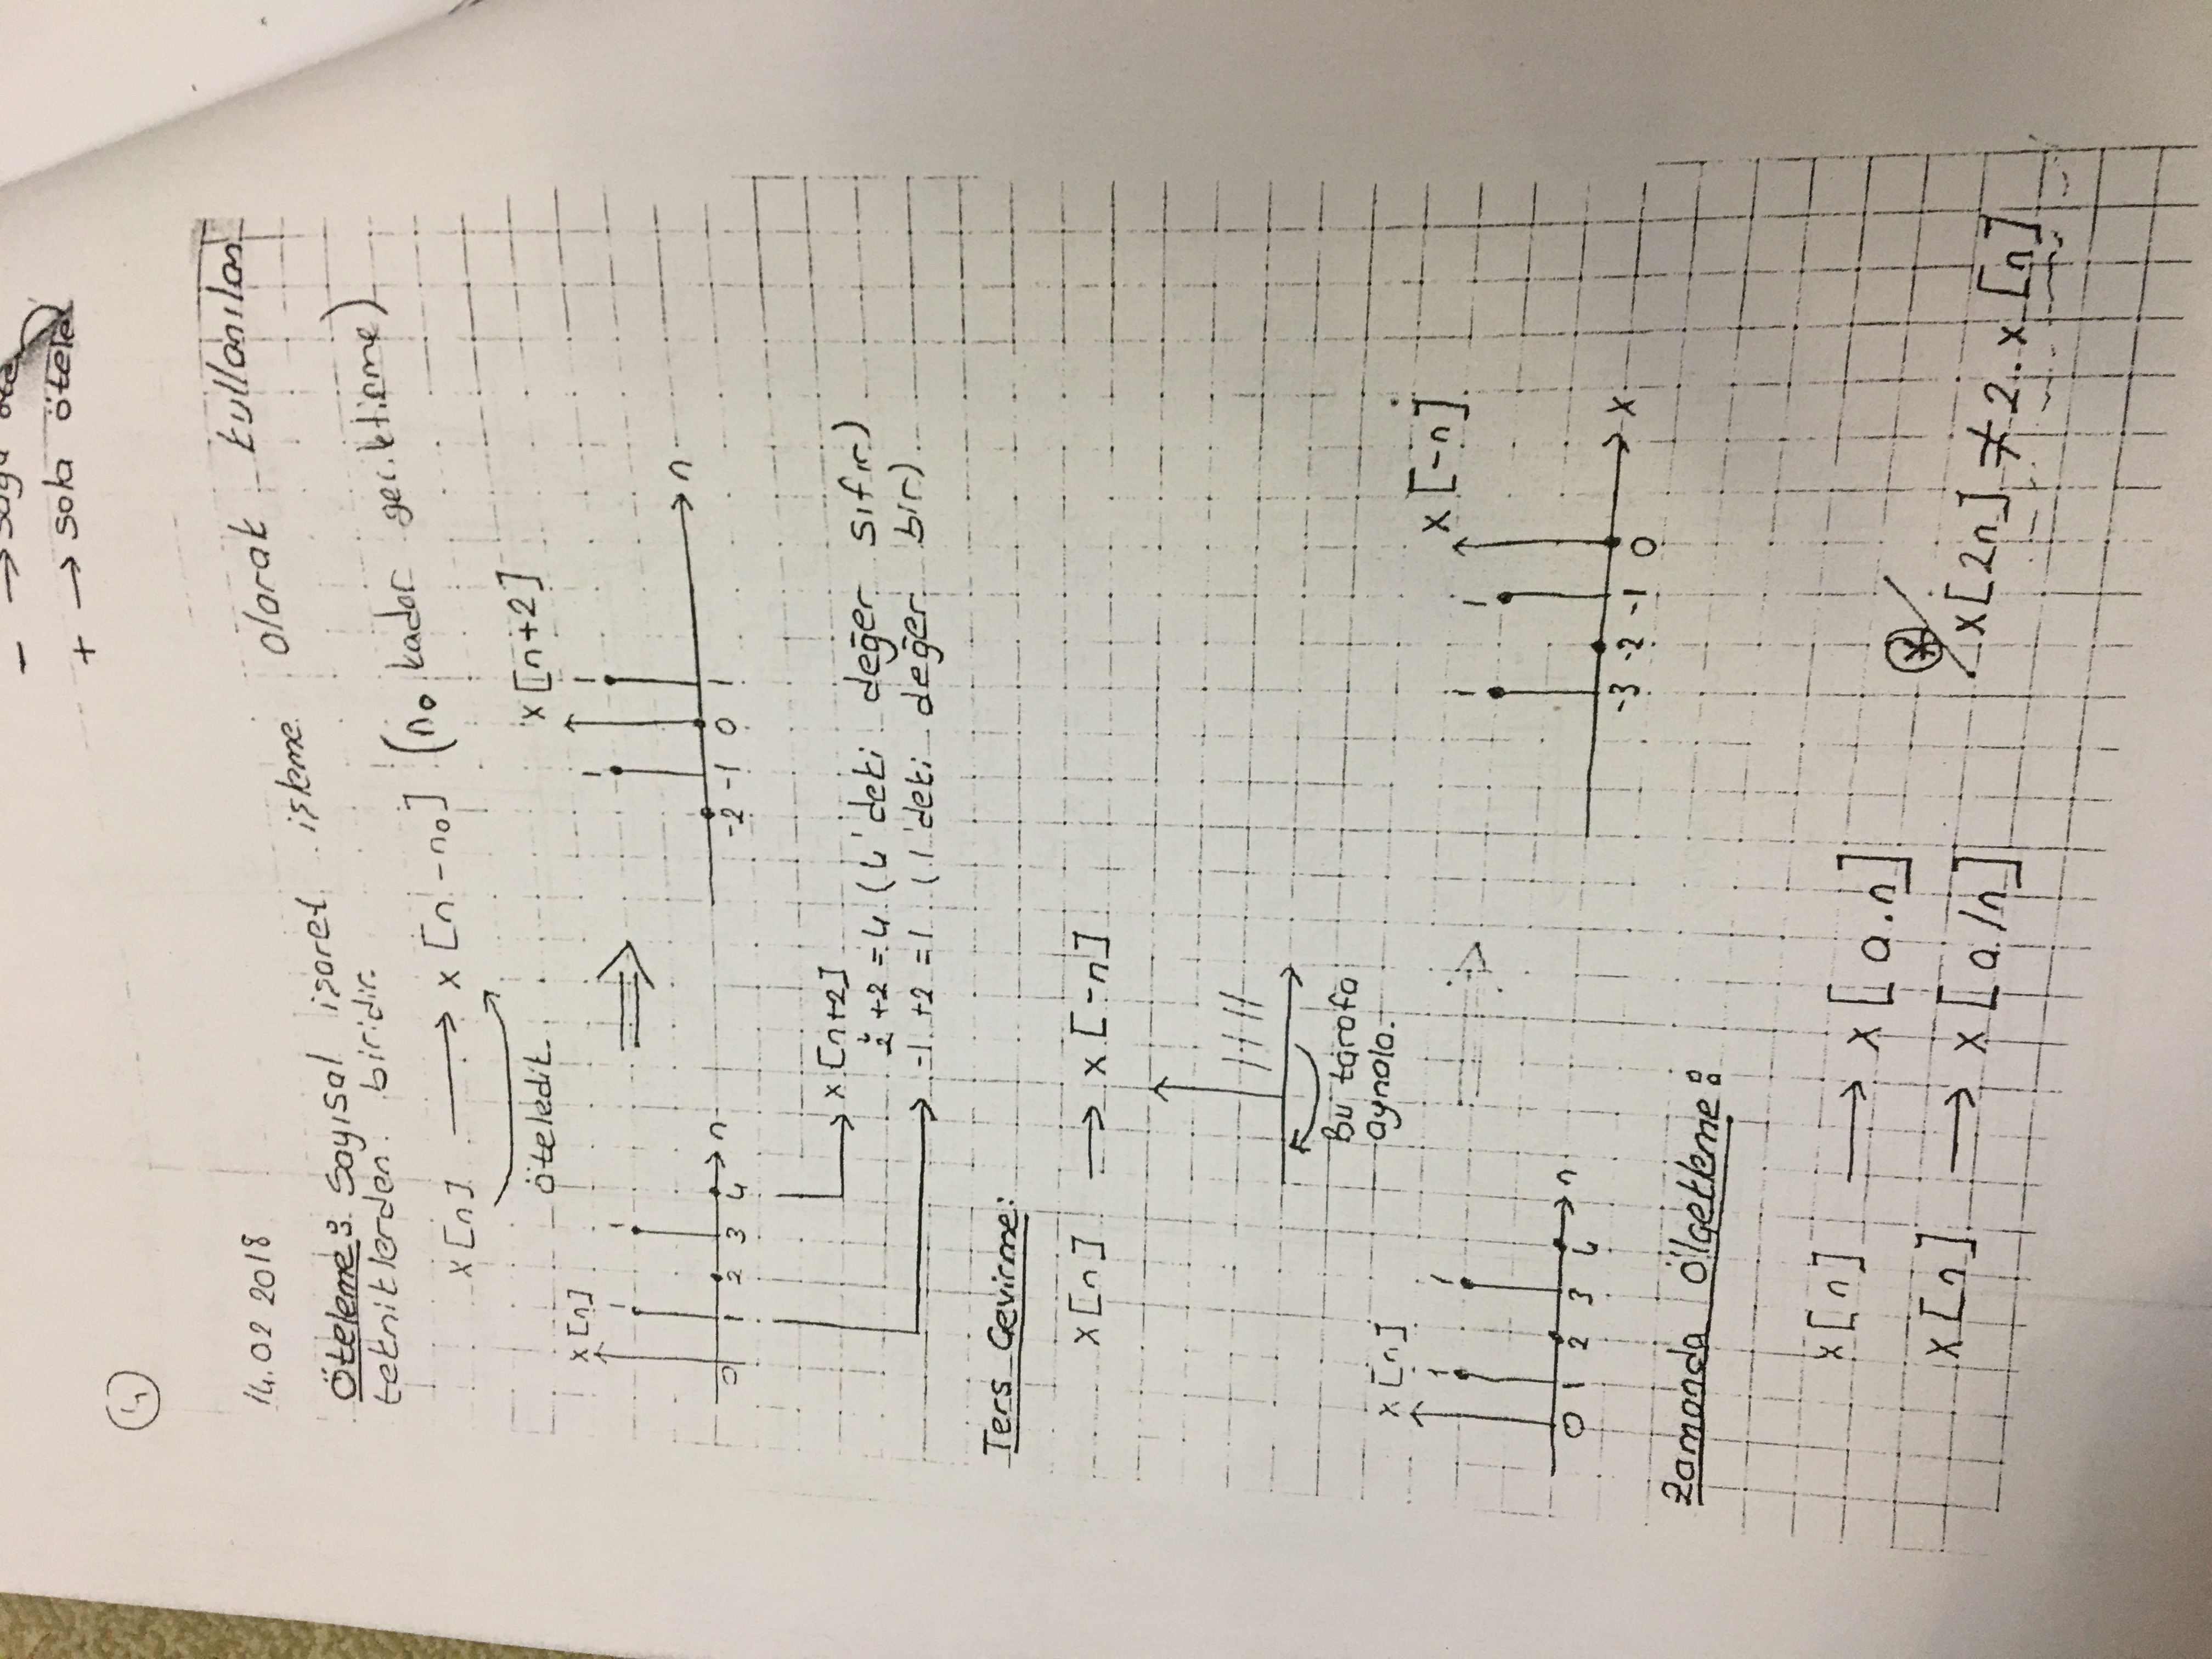 - → sağa ötele
+ → sola ötele
4
14.02 2018
Öteleme: Sayısal işaret işleme olarak kullanılan
tekniklerden biridir.
x[n] → x[n-n₀] (n₀ kadar geciktirme)
öteledik.
x[n]
1 1
0 1 2 3 4 n
x[n+2]
1 1
-2 -1 0 1 n
x[n+2]
2+2=4 (4'deki değer sıfır)
-1+2=1 (1'deki değer bir)
Ters Çevirme:
x[n] ⇒ x[-n]
Bu tarafa
aynala.
x[n]
1 1
0 1 2 3 4 n
x[-n]
1 1
-3 -2 -1 0 x
Zamanda Ölçekleme:
x[n] → x[a.n]
x[n] → x[a/n]
* x[2n] ≠ 2.x[n]